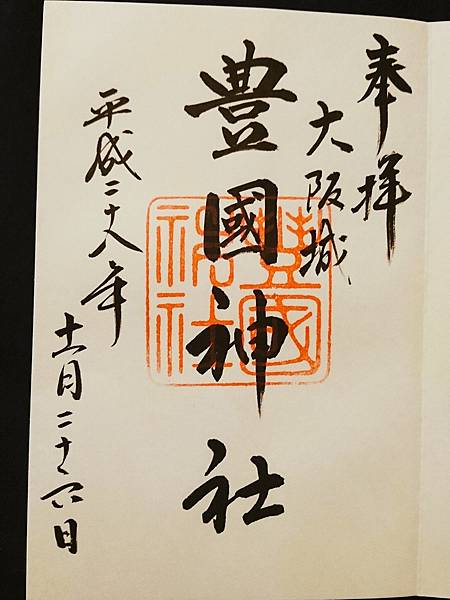 奉拝
大阪城
豊國神社
豊國神社
平成二十八年
十一月二十六日